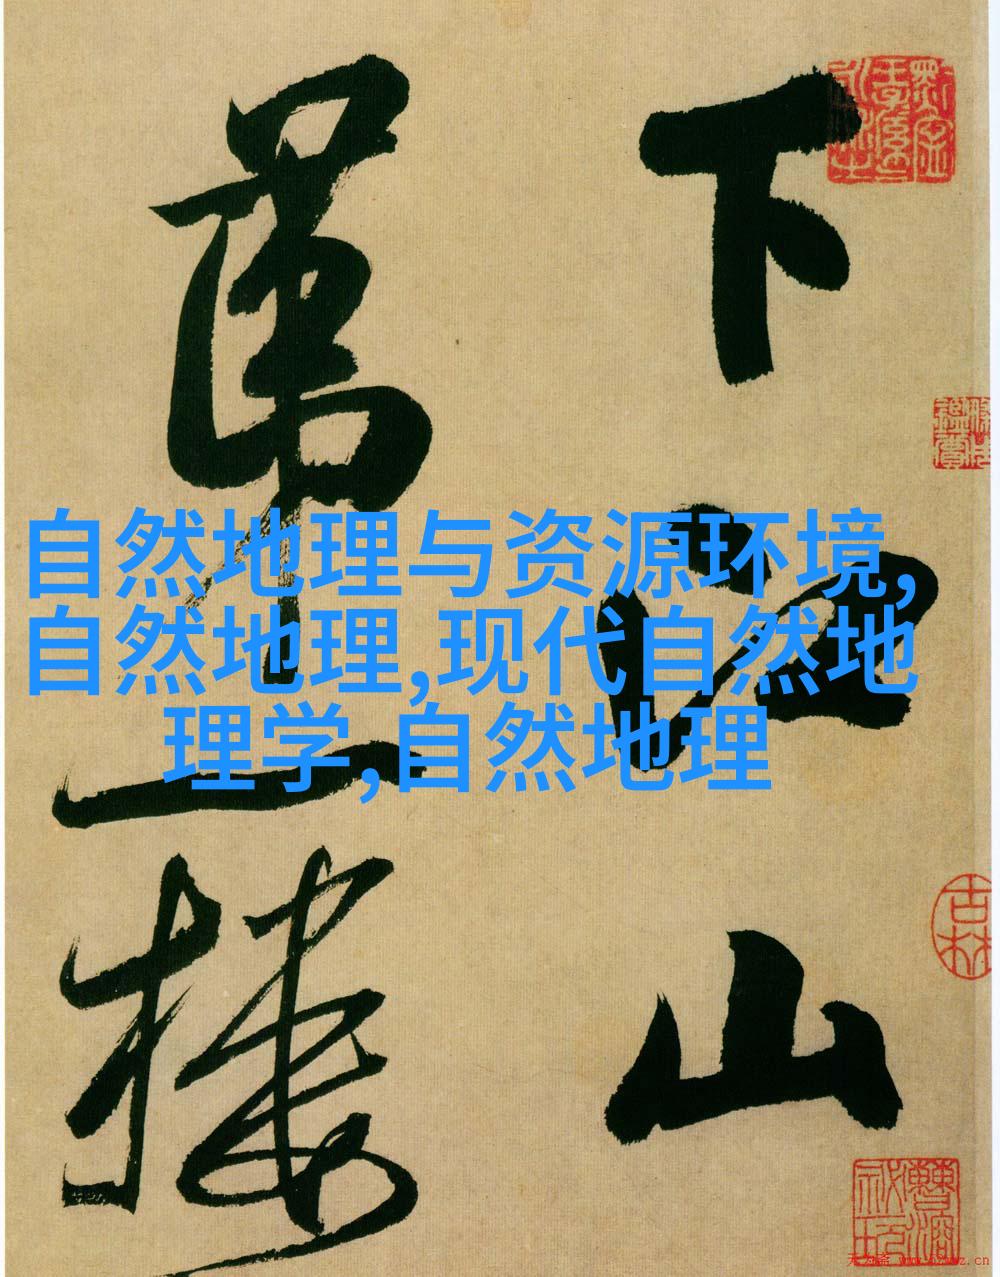 下江山
第一樓
自然地理与资源环境,
自然地理,现代自然地
理学,自然地理